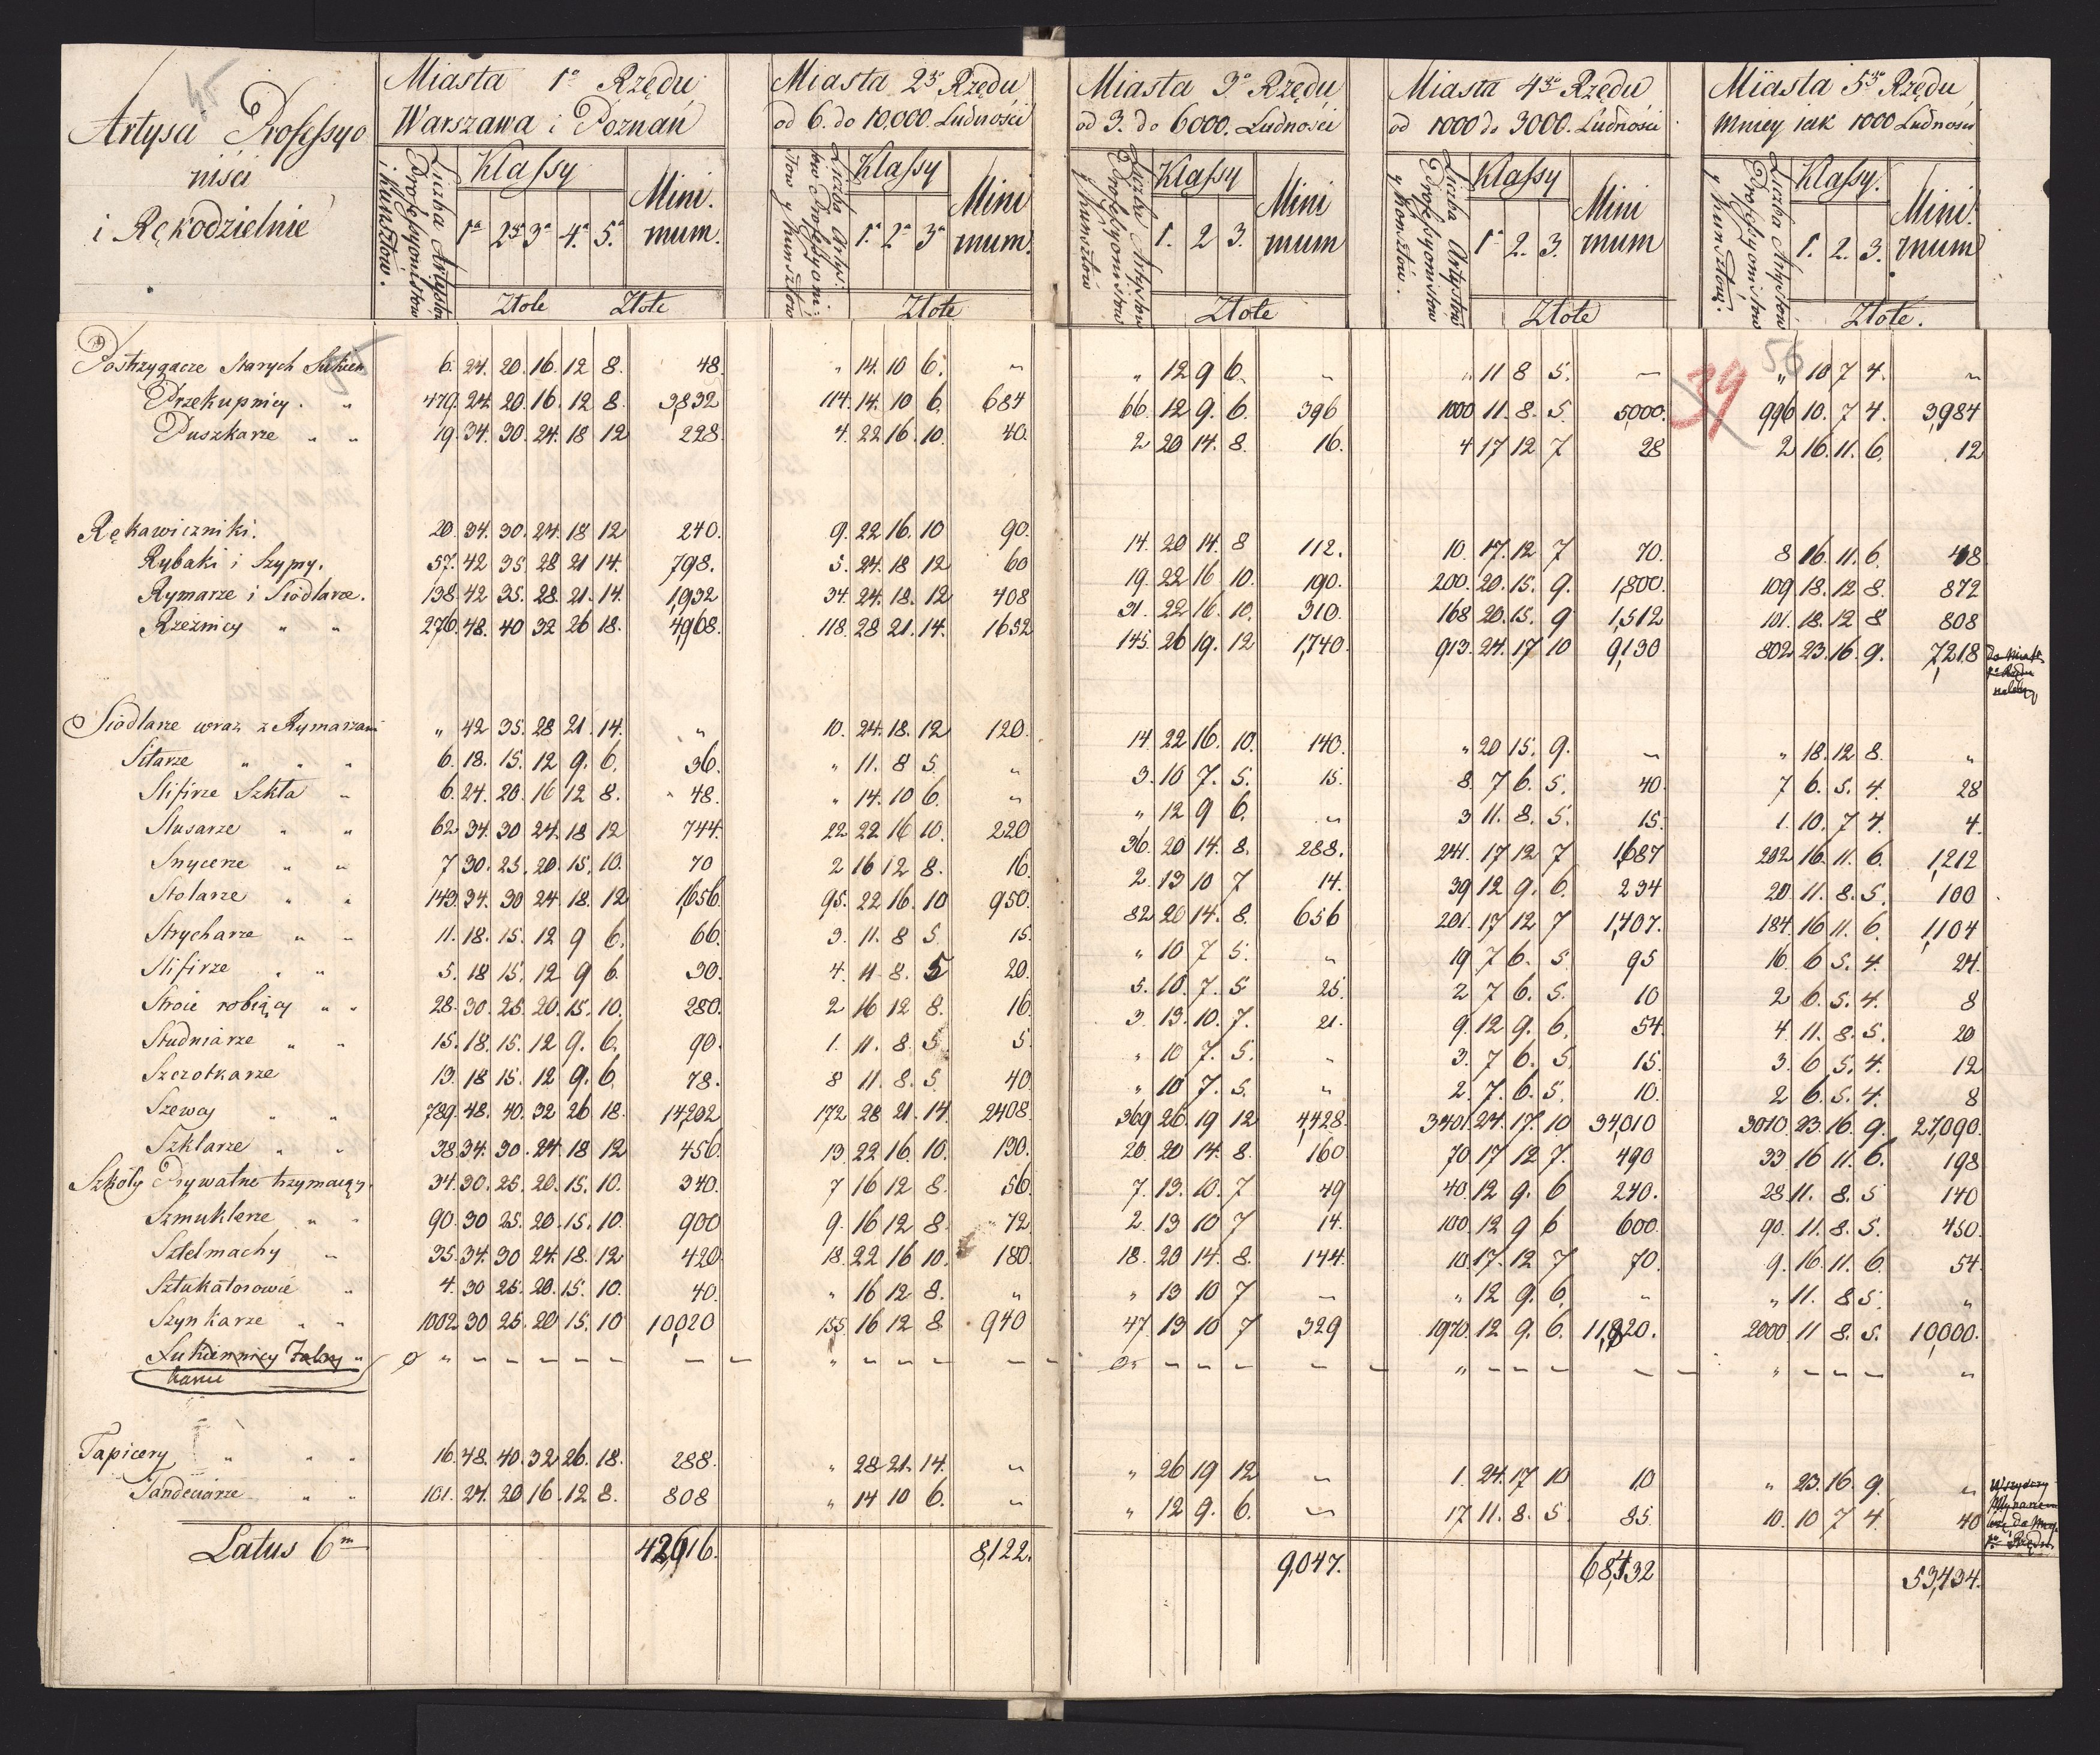 45
Artyści Professyo
niści
i Rękodzielnie
Miasta 1º Rzędu
Warszawa i Poznań
Liczba Artystów Professyonistów i Kunsztów.
Klassy
1ª 2ª 3ª 4ª 5ª
Mini.
mum.
Złote Złote
Miasta 2go Rzędu
od 6. do 10,000. Ludności
Liczba Artystów Professyonistów y Kunsztów
Klassy
1ª 2ª 3ª
Mini
mum.
Złote
Miasta 3º Rzędu
od 3. do 6000. Ludności
Liczba Artystów Professyonistów y Kunsztów
Klassy
1. 2 3.
Mini
mum
Złote
Miasta 4go Rzędu
od 1000 do 3000. Ludności
Liczba Artystów Professyonistów y Konsztów.
Klassy
1ª 2. 3.
Mini
mum
Złote
Miasta 5go Rzędu
mniey iak 1000 Ludności
Liczba Artystów Professyonistów y Kunsztów.
Klassy.
1. 2. 3.
Mini.
mum
Złote.
39
56
Postrzygacze Starych Sukien 6. 24. 20. 16. 12 8. 48. " 14. 10 6. " " 12 9 6. " " 11 8 5. — " 10 7 4. "
Przekupnicy. " 479. 24. 20. 16. 12 8. 3,832 114. 14. 10 6. 684 66. 12 9. 6. 396 1000 11. 8. 5. 5,000. 996 10. 7 4. 3,984
Puszkarze " " 19. 34. 30. 24. 18 12 228. 4. 22 16. 10. 40. 2 20 14. 8. 16. 4 17 12 7 28 2 16. 11. 6. 12
Rękawiczniki. 20. 34. 30. 24. 18 12 240. 9. 22 16. 10 90. 14. 20 14. 8 112. 10. 17. 12 7 70. 8 16. 11. 6. 48
Rybaki i Szypry. 57. 42 35 28 21 14. 798. 5. 24. 18 12 60 19. 22 16 10. 190. 200. 20. 15. 9. 1,800. 109 18. 12 8. 872
Rymarze i Siodlarze. 138. 42 35. 28. 21. 14. 1,932 34 24. 18. 12 408 31. 22 16. 10. 310. 168 20. 15. 9 1,512 101. 18. 12 8 808
Rzeźnicy " " 276. 48. 40 32 26 18. 4,968. 118. 28 21. 14. 1652 145. 26 19. 12 1,740. 913. 24. 17 10 9,130 802 23. 16. 9. 7,218
Siodlarze wraz z Rymarzami " 42 35. 28 21. 14. " 10. 24. 18. 12 120. 14. 22 16. 10. 140. " 20 15. 9. — " 18. 12 8. "
Sitarze " " " 6. 18. 15. 12 9. 6. 36. " 11. 8 5. " 3. 10 7. 5. 15. 8. 7 6. 5. 40. 7 6. 5. 4. 28
Slifirze Szkła " 6. 24. 20. 16 12 8. " 48. " 14. 10 6. " " 12 9 6. " 3 11. 8. 5. 15. 1. 10. 7 4. 4.
Slusarze " " 62 34. 30 24. 18 12 744. 22 22 16 10. 220 36. 20 14. 8. 288. 241. 17 12 7 1,687 202 16. 11. 6. 1,212
Snycerze " " 7 30. 25. 20. 15. 10. 70 2 16 12 8. 16. 2. 13 10 7 14. 39 12 9. 6. 234 20. 11. 8. 5. 100
Stolarze " " 143. 34. 30 24. 18. 12 1,656. 95. 22 16. 10 950. 82 20 14. 8. 656 201. 17 12 7 1,407. 184. 16 11. 6. 1,104
Strycharze " " 11. 18. 15. 12 9 6. 66. 3. 11. 8 5. 15. " 10 7 5. " 19 7 6. 5. 95 16. 6 5. 4. 24.
Slifirze " " 5. 18 15. 12 9 6. 30. 4. 11 8. 5 20. 5. 10. 7. 5 25. 2 7 6. 5. 10 2 6. 5. 4. 8
Stroie robiący " " 28. 30. 25. 20. 15. 10. 280. 2 16 12 8. 16 3 13. 10. 7. 21. 9. 12 9. 6. 54. 4. 11. 8. 5. 20
Studniarze " " 15. 18. 15. 12 9. 6. 90. 1. 11. 8. 5. 5. " 10 7. 5. " 3. 7 6. 5. 15. 3. 6 5. 4. 12
Szczotkarze 13. 18 15. 12 9. 6. 78. 8 11. 8. 5. 40. " 10 7. 5. " 2. 7. 6. 5. 10. 2 6. 5. 4. 8
Szewcy " " 789. 48. 40. 32 26 18. 14,202 172 28 21. 14. 2408. 369 26 19 12 4,428. 3401. 24. 17. 10 34,010 3010. 23. 16. 9. 27,090.
Szklarze " " 38 34. 30. 24. 18 12 456. 13. 22 16. 10. 130. 20 20 14. 8. 160 70 17 12 7. 490 33 16 11. 6. 198
Szkoły Prywatne trzymaiący. 34. 30. 25. 20. 15. 10. 340. 7 16 12 8. 56. 7. 13. 10. 7 49 40. 12 9. 6 240. 28. 11. 8. 5 140
Szmuklerze " " 90. 30 25. 20. 15. 10. 900 9. 16 12 8. 72 2. 13 10 7 14. 100. 12 9 6 600. 90. 11. 8. 5. 450.
Sztelmachy " 35. 34. 30 24. 18. 12 420. 18. 22 16 10. 180. 18. 20 14. 8. 144. 10. 17. 12 7 70. 9. 16. 11. 6. 54.
Sztukatorowie " 4. 30 25. 20. 15. 10. 40. " 16 12 8. " " 13 10 7 — " 12 9. 6. " " 11. 8 5. "
Szynkarze " " 1002 30 25. 20 15. 10 10,020 155 16 12 8. 940 47. 13 10 7 329 1970. 12. 9. 6. 11,820. 2000 11 8. 5. 10,000.
Sukiennicy " " — — — — — — — " — — — — — — — — — " — — — — " — — — "
Tapicery " " " 16. 48. 40. 32 26. 18. 288. " 28 21. 14. " " 26 19 12 " 1. 24. 17 10 10 " 23. 16. 9. "
Tandeciarze " " 101. 24. 20 16. 12 8. 808 " 14 10 6. " " 12 9. 6. " 17 11. 8. 5 85. 10. 10 7 4. 40
Latus 6m 42,616. 8,122. 9,047. 68,432 53,434.